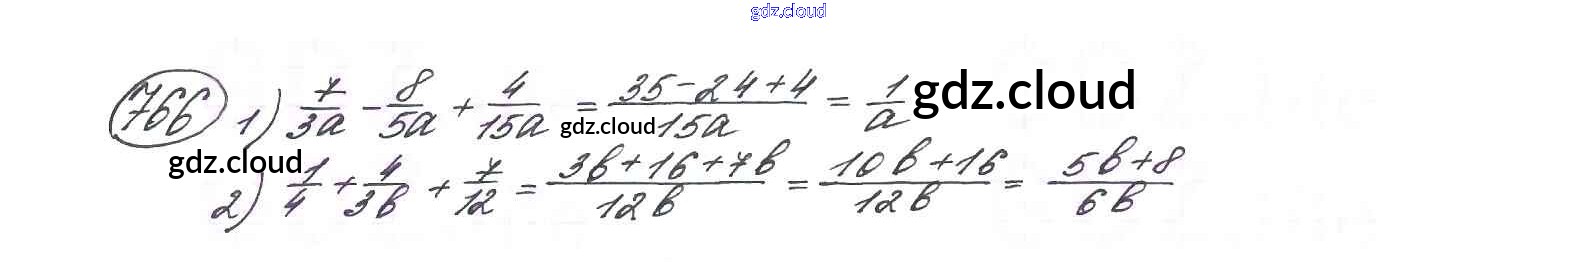 gdz.cloud
766 1) 7/3a - 8/5a + 4/15a = 35-24+4/15a = 1/a gdz.cloud
gdz.cloud
gdz.cloud
2) 1/4 + 4/3b + 7/12 = 3b+16+7b/12b = 10b+16/12b = 5b+8/6b